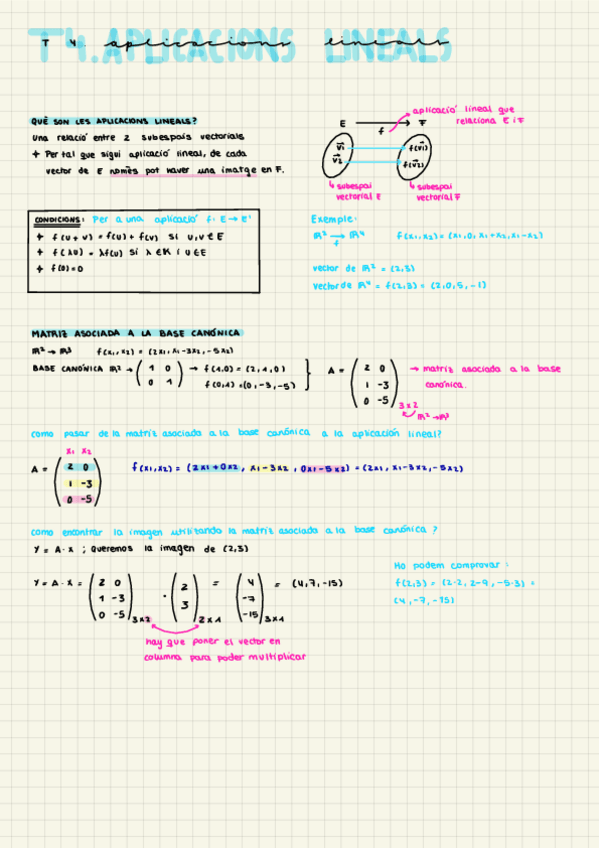 T4. APLICACIONS LINEALS
T 4 aplicacions lineals
QUÈ SON LES APLICACIONS LINEALS?
Una relació entre 2 subespais vectorials
+ Per tal que sigui aplicació lineal, de cada
vector de E només pot haver una imatge en F.
aplicació lineal que
relaciona E i F
E → F
f
v1 f(v1)
v2 f(v2)
↳ subespai
vectorial E
↳ subespai
vectorial F
CONDICIONS: Per a una aplicació f: E → E'
+ f(u+v) = f(u) + f(v) si u,v ∈ E
+ f(λu) = λf(u) si λ ∈ K i u ∈ E
+ f(0) = 0
Exemple:
IR² → IR⁴ f(x1,x2) = (x1,0,x1+x2,x1-x2)
f
vector de IR² = (2,3)
vector de IR⁴ = f(2,3) = (2,0,5,-1)
MATRIZ ASOCIADA A LA BASE CANÓNICA
IR² → IR³ f(x1,x2) = (2x1, x1-3x2, -5x2)
BASE CANÓNICA IR² → ( 1 0 ) → f(1,0) = (2,1,0)
( 0 1 ) f(0,1) = (0,-3,-5)
A = ( 2 0
1 -3
0 -5 ) 3x2
→ matriz asociada a la base
canónica.
IR² → IR³
como pasar de la matriz asociada a la base canónica a la aplicación lineal?
x1 x2
A = ( 2 0
1 -3
0 -5 )
f(x1,x2) = (2x1+0x2, x1-3x2, 0x1-5x2) = (2x1, x1-3x2, -5x2)
como encontrar la imagen utilizando la matriz asociada a la base canónica?
Y = A·X ; Queremos la imagen de (2,3)
Y = A·X = ( 2 0
1 -3
0 -5 ) 3x2 · ( 2
3 ) 2x1 = ( 4
-7
-15 ) 3x1 = (4,7,-15)
hay que poner el vector en
columna para poder multiplicar
Ho podem comprovar:
f(2,3) = (2·2, 2-9, -5·3) =
(4,-7,-15)